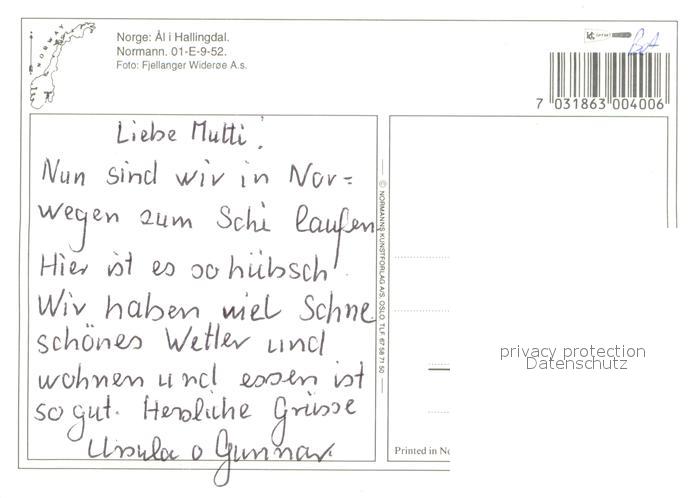 NORWAY
Norge: Ål i Hallingdal.
Normann. 01-E-9-52.
Foto: Fjellanger Widerøe A.s.
OFFSET
7 031863 004006
Liebe Mutti!
Nun sind wir in Nor=
wegen zum Schi laufen
Hier ist es so hübsch
Wir haben viel Schne
schönes Wetter und
wohnen und essen ist
so gut. Herzliche Grüsse
Ursula o Gunnar.
© NORMANNS KUNSTFORLAG A/S, OSLO. TLF. 67 58 71 50
privacy protection
Datenschutz
Printed in No